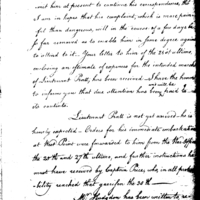 mit him at present to continue his correspondence, but
I am in hopes that his complaint, which is more pain-
ful than dangerous, will in the course of a few days be
so far removed as to enable him in some degree again
to attend to it. Your letter to him of the 22d ultimo,
enclosing an estimate of expences for the intended march
of Lieutenant Pratt has been received. I have the honor
to inform you that due attention has been paid to
its contents.
Lieutenant Pratt is not yet arrived—he is
hourly expected. Orders for his immediate embarkation
at West Point was forwarded to him from this office
the 20th and 27th ultimo, and further instructions he
must have received by Captain Price, who in all proba-
bility reached that garrison the 30th
Mr Hodgdon has been written to